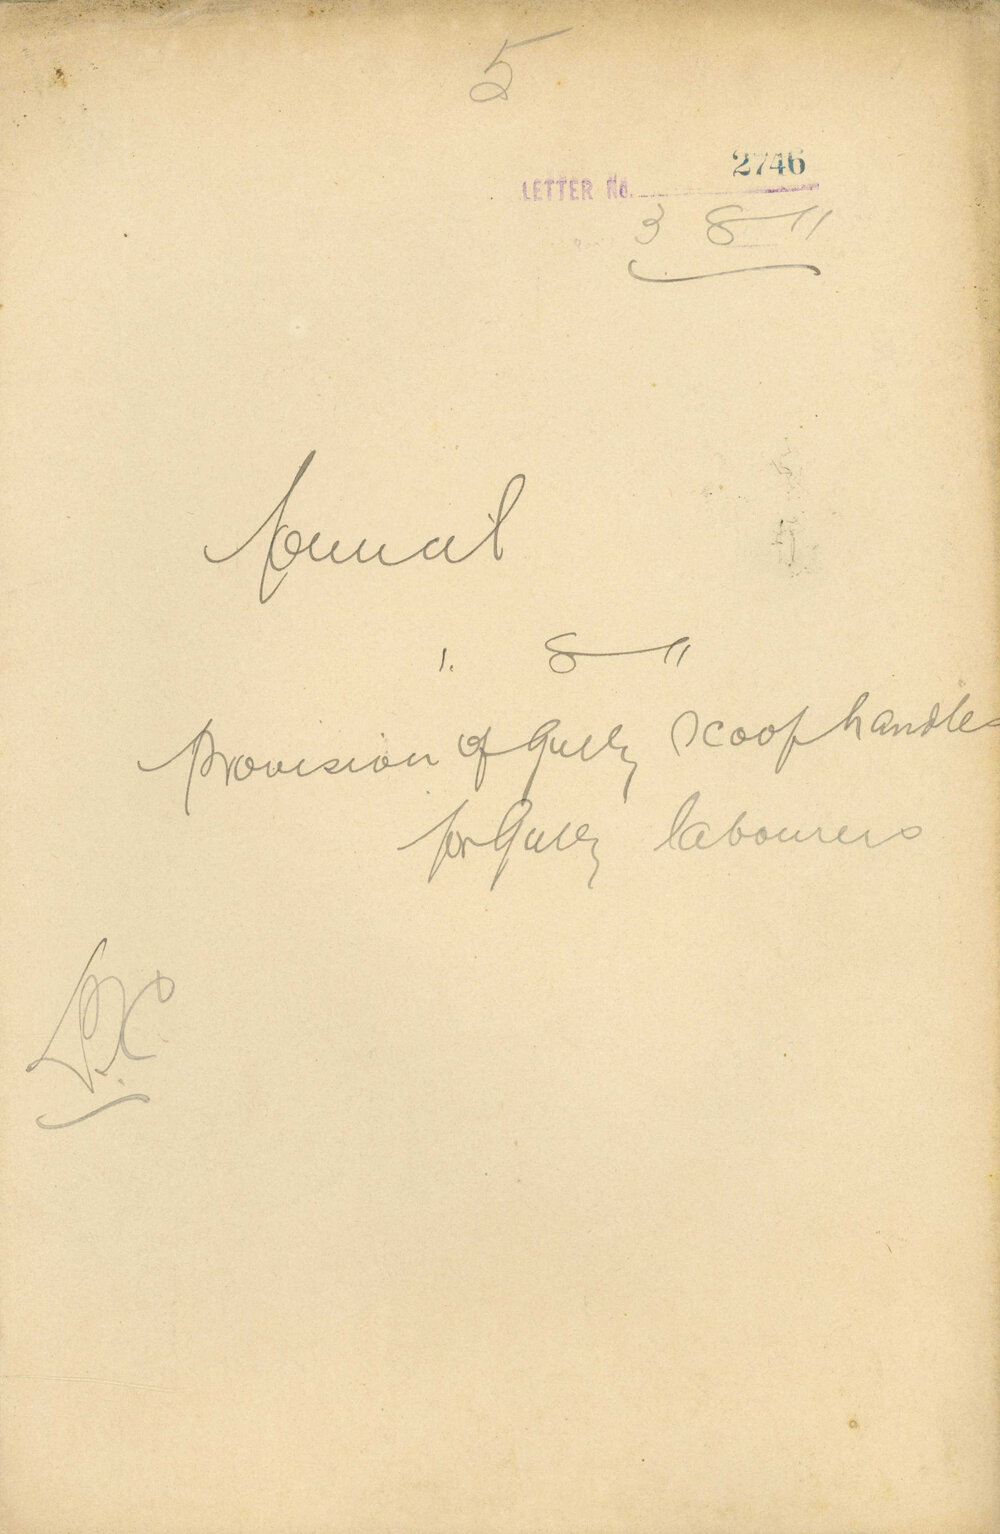 5
LETTER No. 2746
3 8 11
Council
1. 8 11
Provision of Gully Scoop handles
for Gully labourers